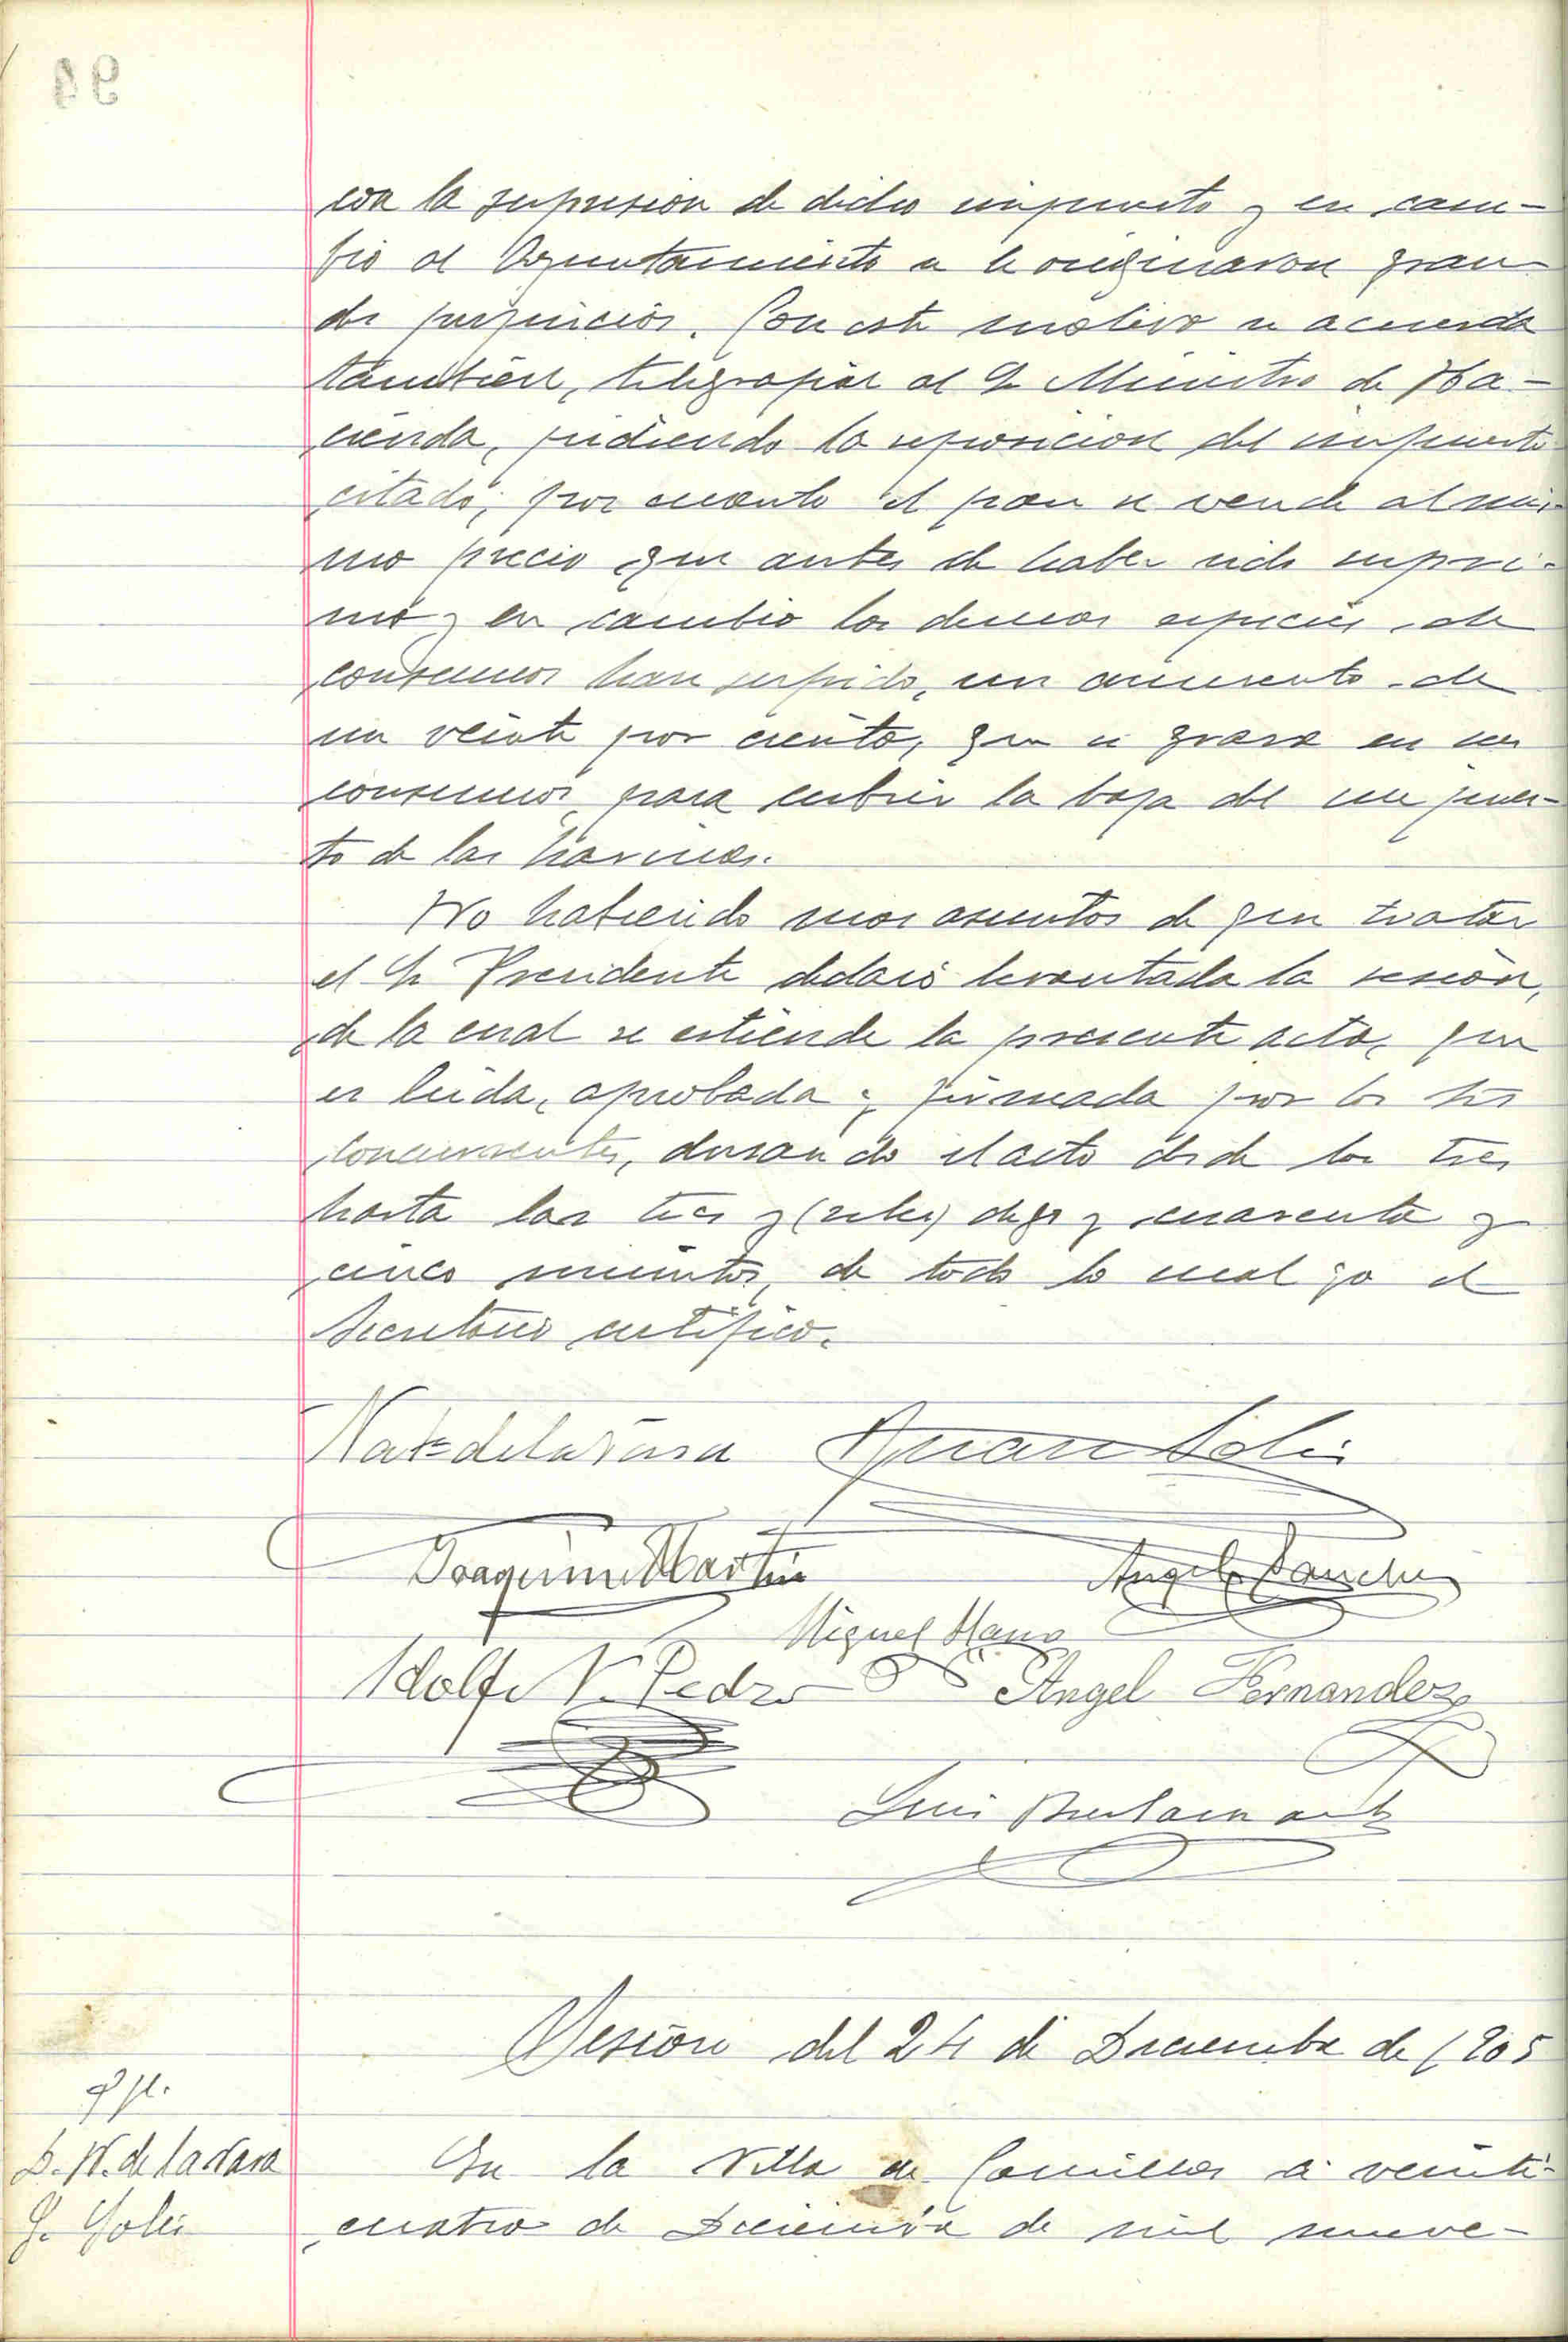 con la supresion de dicho impuesto y en cam-
bio al Ayuntamiento se le originaron gran-
des perjuicios. Con este motivo se acuerda
tambien, telegrafiar al Sr Ministro de Ha-
cienda, pidiendo la reposicion del impuesto
citado; por cuanto el pan se vende al mis-
mo precio que antes de haber sido supri-
mido y en cambio las demas especies de
consumos han sufrido, un aumento de
un veinte por ciento, que se grava en
consumos para cubrir la baja del impues-
to de las harinas.
No habiendo mas asuntos de que tratar
el Sr Presidente declaró levantada la sesión,
de la cual se estiende la presente acta, que
es leida, aprobada y firmada por los Sres
concurrentes, durando el acto desde las tres
hasta las tres y cuarenta y
cinco minutos, de todo lo cual yo el
Secretario certifico.
Juan Solis
Joaquin Martin
Angel Sanchez
Miguel
Adolfo V. Pedro
Angel Fernandez
Luis Bustamante
Sesion del 24 de Diciembre de 1905
D. N. de la Vara
J. Solis
En la Villa de Comillas á veinti-
cuatro de Diciembre de mil nueve-
94